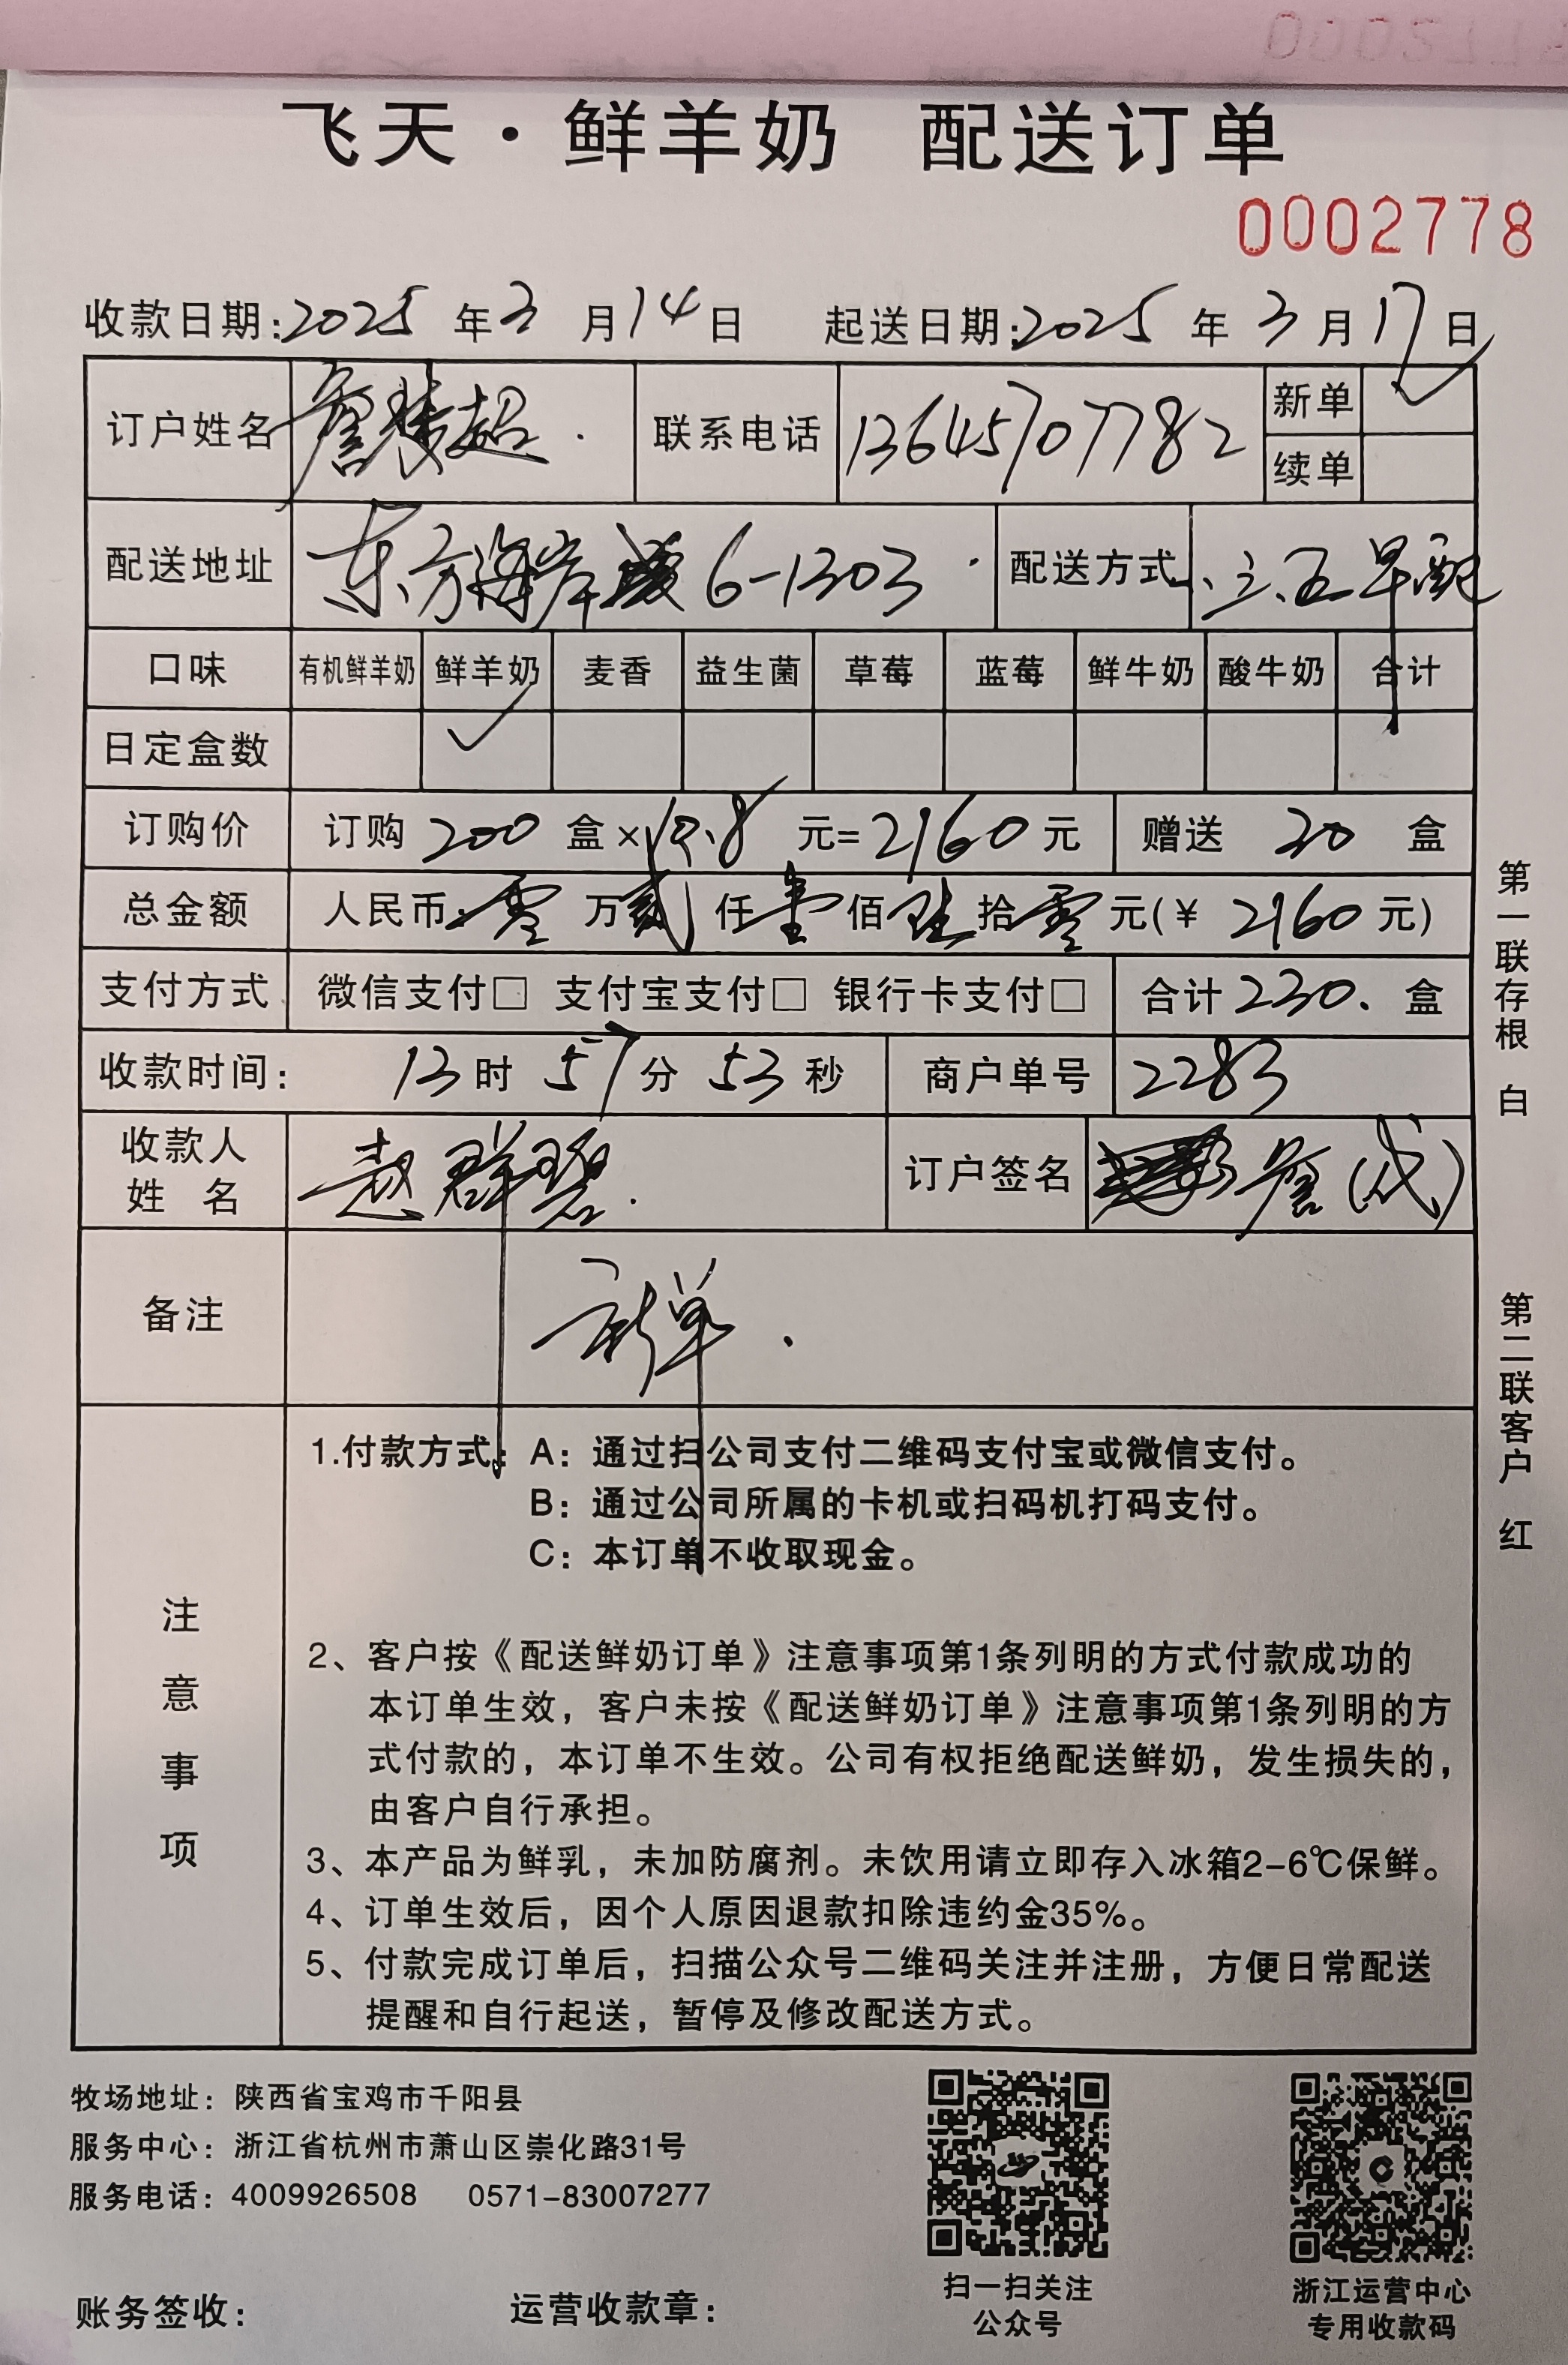 飞天·鲜羊奶 配送订单
0002778
收款日期:2025年3月14日 起送日期:2025年3月17日
订户姓名 詹 超 联系电话 13645707782 新单 ✓
续单
配送地址 东方海岸 6-1303 配送方式 一、三、五早配
口味 有机鲜羊奶 鲜羊奶 麦香 益生菌 草莓 蓝莓 鲜牛奶 酸牛奶 合计
日定盒数 ✓
订购价 订购 200 盒×10.8 元=2160元 赠送 30 盒
总金额 人民币:零万贰仟壹佰陆拾零元(¥ 2160元)
支付方式 微信支付□ 支付宝支付□ 银行卡支付□ 合计230.盒
收款时间: 13时57分53秒 商户单号 2283
收款人姓名 赵群碧. 订户签名 詹(代)
备注 新单.
注意事项
1.付款方式:A:通过扫公司支付二维码支付宝或微信支付。
B:通过公司所属的卡机或扫码机打码支付。
C:本订单不收取现金。
2、客户按《配送鲜奶订单》注意事项第1条列明的方式付款成功的
本订单生效,客户未按《配送鲜奶订单》注意事项第1条列明的方
式付款的,本订单不生效。公司有权拒绝配送鲜奶,发生损失的,
由客户自行承担。
3、本产品为鲜乳,未加防腐剂。未饮用请立即存入冰箱2-6℃保鲜。
4、订单生效后,因个人原因退款扣除违约金35%。
5、付款完成订单后,扫描公众号二维码关注并注册,方便日常配送
提醒和自行起送,暂停及修改配送方式。
第一联存根 白
第二联客户 红
牧场地址:陕西省宝鸡市千阳县
服务中心:浙江省杭州市萧山区崇化路31号
服务电话:4009926508 0571-83007277
扫一扫关注
公众号
浙江运营中心
专用收款码
账务签收: 运营收款章: